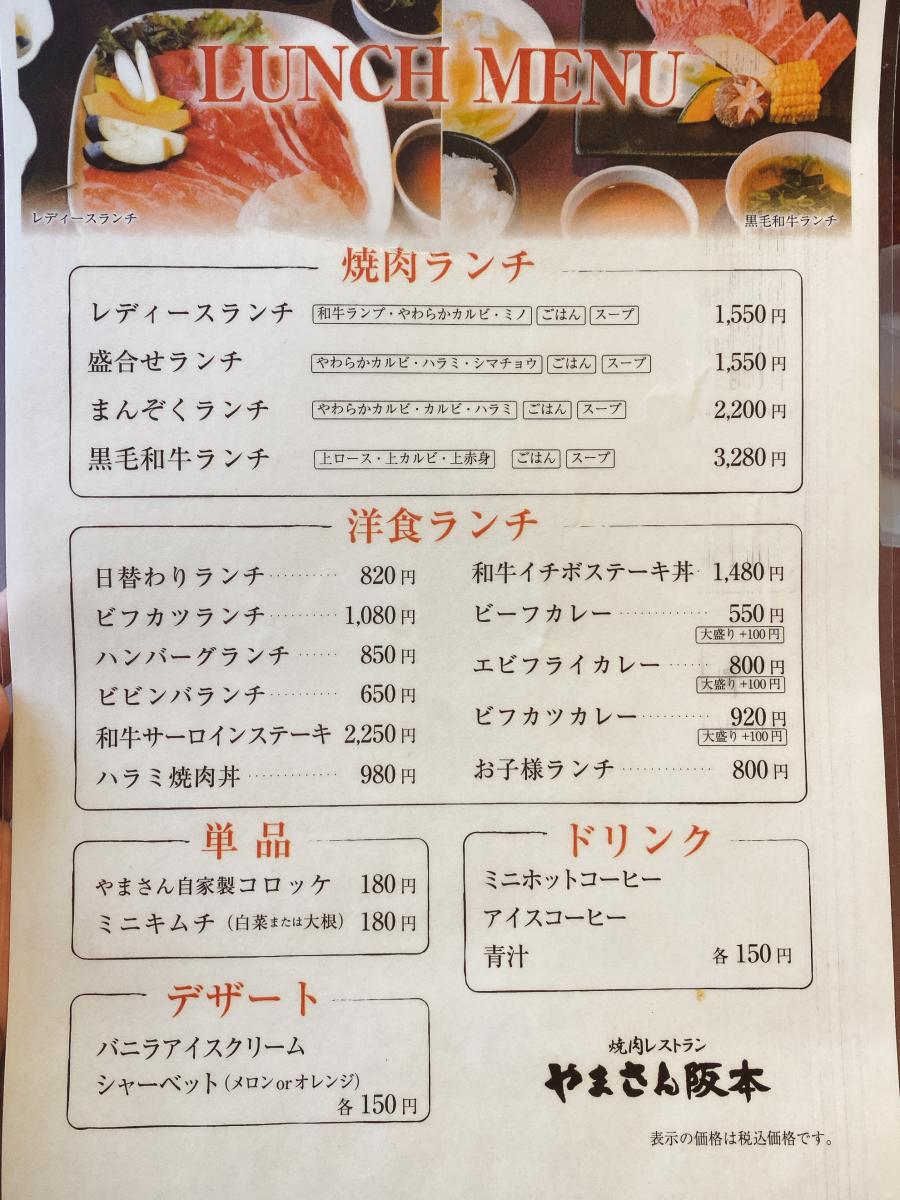 LUNCH MENU
レディースランチ
黒毛和牛ランチ
焼肉ランチ
レディースランチ 和牛ランプ・やわらかカルビ・ミノ ごはん スープ 1,550円
盛合せランチ やわらかカルビ・ハラミ・シマチョウ ごはん スープ 1,550円
まんぞくランチ やわらかカルビ・カルビ・ハラミ ごはん スープ 2,200円
黒毛和牛ランチ 上ロース・上カルビ・上赤身 ごはん スープ 3,280円
洋食ランチ
日替わりランチ 820円
ビフカツランチ 1,080円
ハンバーグランチ 850円
ビビンバランチ 650円
和牛サーロインステーキ 2,250円
ハラミ焼肉丼 980円
和牛イチボステーキ丼 1,480円
ビーフカレー 550円
大盛り+100円
エビフライカレー 800円
大盛り+100円
ビフカツカレー 920円
大盛り+100円
お子様ランチ 800円
単品
やまさん自家製コロッケ 180円
ミニキムチ(白菜または大根) 180円
ドリンク
ミニホットコーヒー
アイスコーヒー
青汁 各150円
デザート
バニラアイスクリーム
シャーベット(メロンorオレンジ)
各150円
焼肉レストラン
やまさん阪本
表示の価格は税込価格です。